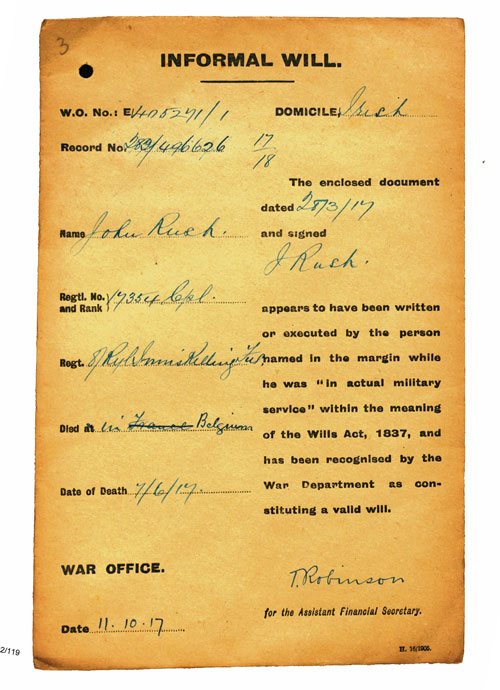 3
INFORMAL WILL.
W.O. No.: E/405271/1
DOMICILE, Irish
Record No. 283/496626 17/18
The enclosed document
dated 28/3/17
Name John Rush.
and signed
J Rush.
Regtl. No. and Rank } 17354 Cpl.
appears to have been written
or executed by the person
Regt. 8/Ryl Inniskilling Fus
named in the margin while
he was "in actual military
service" within the meaning
Died at in France Belgium
of the Wills Act, 1837, and
has been recognised by the
Date of Death 7/6/17.
War Department as con-
stituting a valid will.
WAR OFFICE.
T. Robinson
for the Assistant Financial Secretary.
Date 11.10.17
2/119